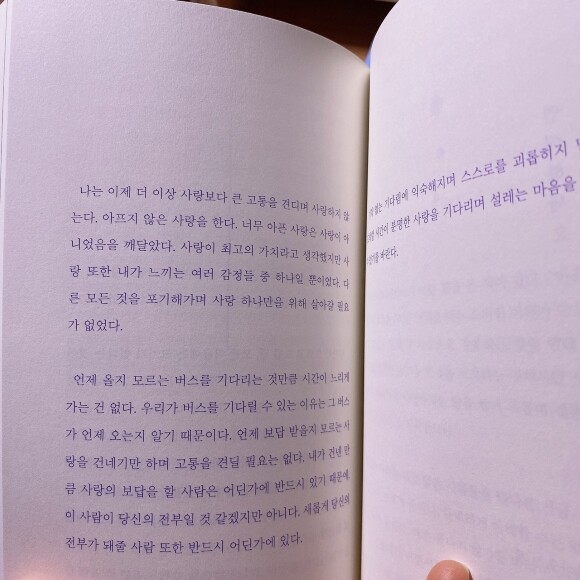 나는 이제 더 이상 사랑보다 큰 고통을 견디며 사랑하지 않
는다. 아프지 않은 사랑을 한다. 너무 아픈 사랑은 사랑이 아
니었음을 깨달았다. 사랑이 최고의 가치라고 생각했지만 사
랑 또한 내가 느끼는 여러 감정들 중 하나일 뿐이었다. 다
른 모든 것을 포기해가며 사랑 하나만을 위해 살아갈 필요
가 없었다.
언제 올지 모르는 버스를 기다리는 것만큼 시간이 느리게
가는 건 없다. 우리가 버스를 기다릴 수 있는 이유는 그 버스
가 언제 오는지 알기 때문이다. 언제 보답 받을지 모르는 사
랑을 건네기만 하며 고통을 견딜 필요는 없다. 내가 건넨 만
큼 사랑의 보답을 할 사람은 어딘가에 반드시 있기 때문에.
이 사람이 당신의 전부일 것 같겠지만 아니다. 새롭게 당신의
전부가 돼줄 사람 또한 반드시 어딘가에 있다.
없는 기다림에 익숙해지며 스스로를 괴롭히지
시간이 분명한 사랑을 기다리며 설레는 마음을
바란다.